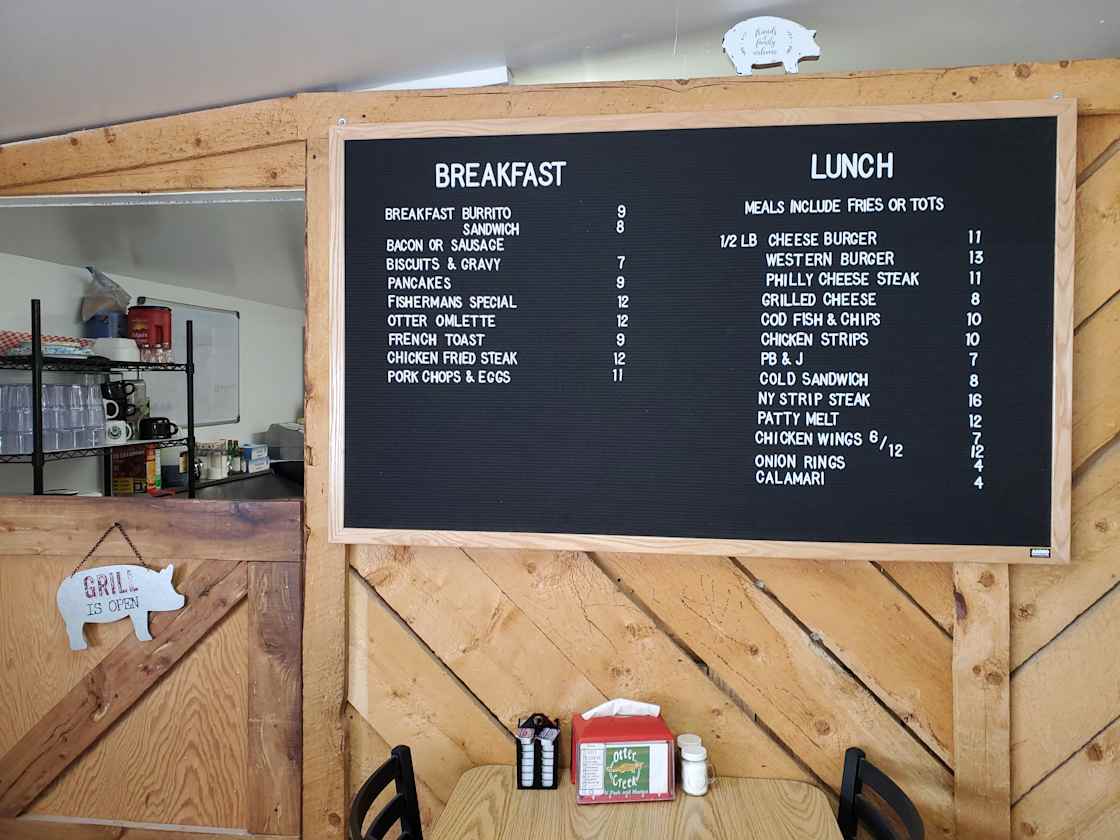 friends
&
family
welcome
BREAKFAST
BREAKFAST BURRITO 9
SANDWICH 8
BACON OR SAUSAGE
BISCUITS & GRAVY 7
PANCAKES 9
FISHERMANS SPECIAL 12
OTTER OMLETTE 12
FRENCH TOAST 9
CHICKEN FRIED STEAK 12
PORK CHOPS & EGGS 11
LUNCH
MEALS INCLUDE FRIES OR TOTS
1/2 LB CHEESE BURGER 11
WESTERN BURGER 13
PHILLY CHEESE STEAK 11
GRILLED CHEESE 8
COD FISH & CHIPS 10
CHICKEN STRIPS 10
PB & J 7
COLD SANDWICH 8
NY STRIP STEAK 16
PATTY MELT 12
CHICKEN WINGS 6/12 7
12
ONION RINGS 4
CALAMARI 4
GRILL
IS OPEN
Otter
Creek